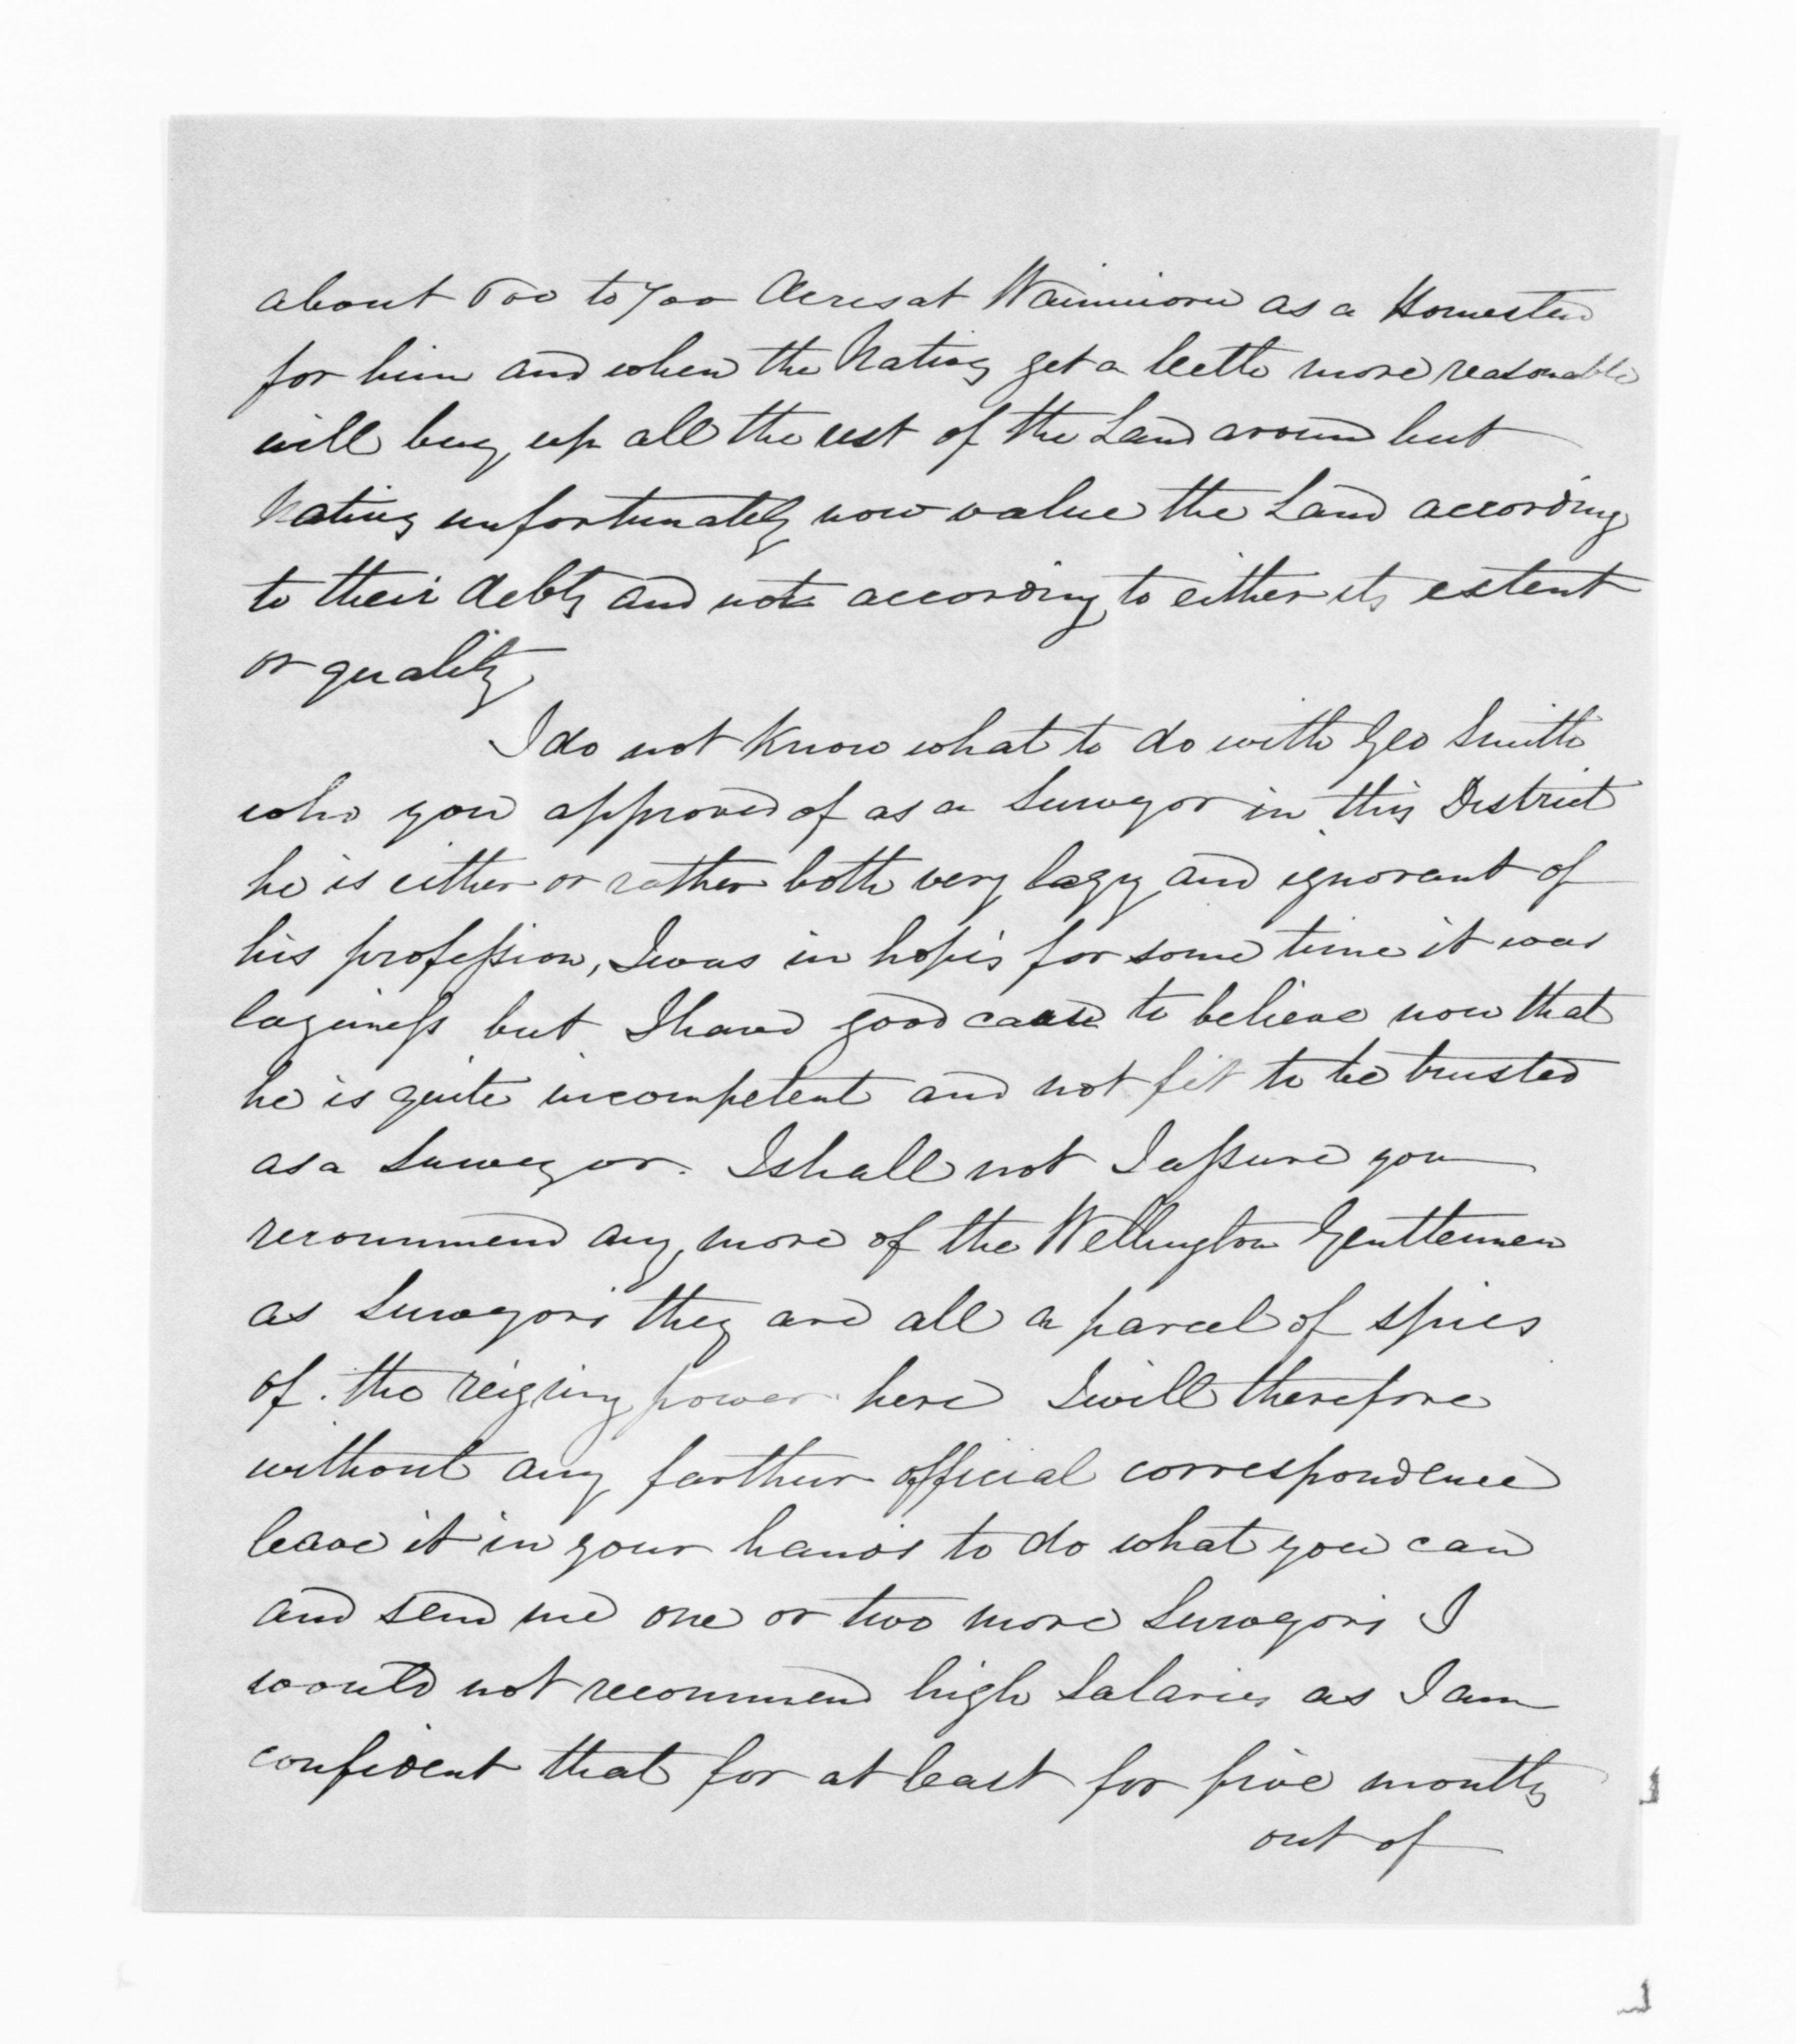 about 500 to 700 Acres at as a Homestead
for him and when the Natives get a little more reasonable
will buy up all the rest of the Land around but
Natives unfortunately now value the Land according
to their debts and not according to either its extent
or quality
I do not know what to do with Geo Smith
who you approved of as a Surveyor in this District
he is either or rather both very lazy and ignorant of
his profession, I was in hopes for some time it was
lazeiness but I have good cause to believe now that
he is quite incompetent and not fit to be trusted
as a Surveyor. I shall not I assure you
recommend any more of the Wellington Gentlemen
as Surveyors they are all a parcel of spies
of the reigning power here I will therefore
without any farther official correspondence
leave it in your hands to do what you can
and send me one or two more Surveyors I
would not recommend high Salaries as I am
confident that for at least for five months
out of